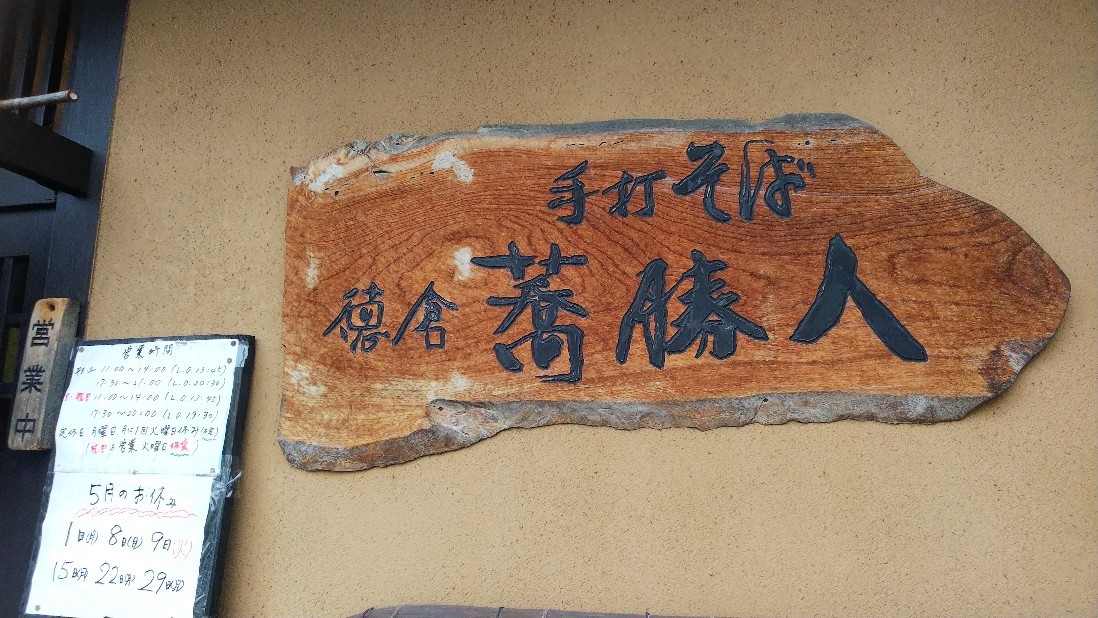 手打そば
徳倉 蕎勝人
営業中
営業時間
11:00〜14:00 (L.O.13:45)
17:30〜21:00 (L.O.20:30)
11:00〜14:00 (L.O.13:45)
17:30〜20:00 (L.O.19:30)
定休日 月曜日 月に1回火曜日休み
(祝日は営業 火曜日休業)
5月のお休み
1日(月) 8日(月) 9日(火)
15日(月) 22日(月) 29日(月)